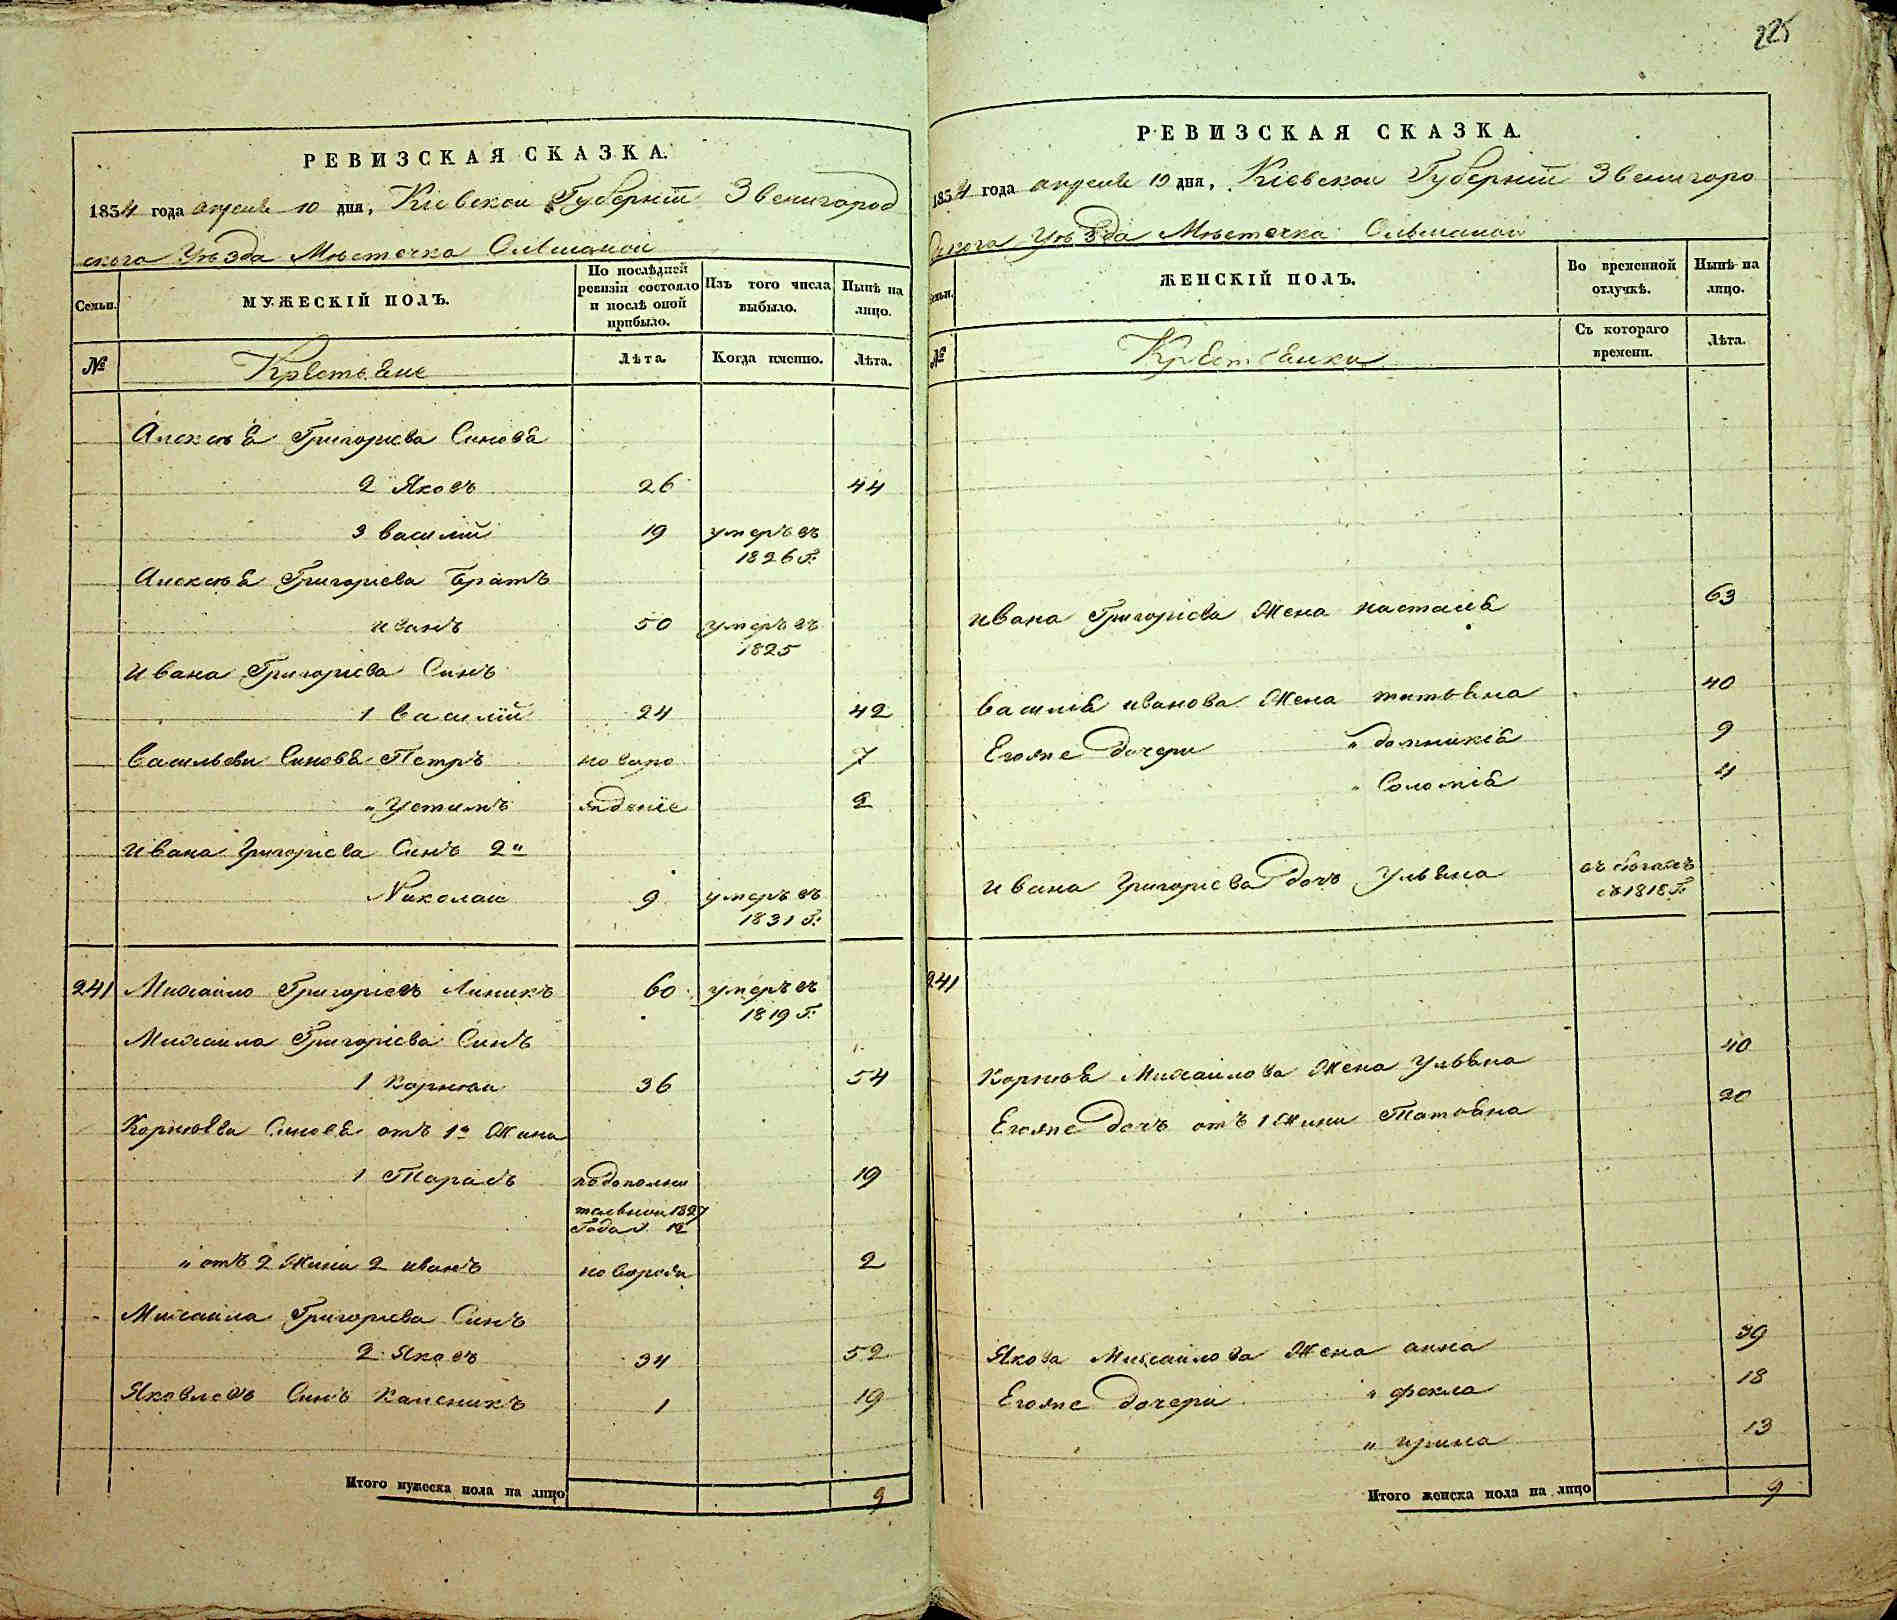 РЕВИЗСКАЯ СКАЗКА.
1834 года апреля 10 дня, Кіевской Губерніи Звенигород
ского Уѣзда Мѣстечка Ольшаной
Семьи.
МУЖЕСКІЙ ПОЛЪ.
По послѣдней ревизіи состояло и послѣ оной прибыло.
Изъ того числа выбыло.
Нынѣ на лицо.
№
Крестьяне
Лѣта.
Когда именно.
Лѣта.
Алексѣя Григорієва Синовя
2 Яковъ 26 44
3 василій 19 умеръ въ
1826 Г:
Алексѣя Григорієва Братъ
иванъ 50 умеръ въ
1825
Ивана Григорієва Синъ
1 василій 24 42
Васильеви Синовя Петръ новоро 7
„ Устимъ жденіе 2
Ивана Григорієва Синъ 2й
Николай 9 умеръ въ
1831 Г:
241 Михайло Григорієвъ Линикъ 60 умеръ въ
1819 Г:
Михаила Григорієва Синъ
1 Корнѣй 36 54
Корнѣева Синовя отъ 1й Жини
1 Тарасъ по дополни 19
тельной 1827
Года 12
„ отъ 2 Жини 2 иванъ новорож 2
Михаила Григорієва Синъ
2 Яковъ 34 52
Яковлевъ Синъ Каленикъ 1 19
Итого мужеска пола на лицо 9
225
РЕВИЗСКАЯ СКАЗКА.
1834 года апреля 10 дня, Кіевской Губерніи Звенигоро
дского Уѣзда Мѣстечка Ольшаной
Семьи.
ЖЕНСКІЙ ПОЛЪ.
Во временной отлучкѣ.
Нынѣ на лицо.
№
Крестьянки
Съ котораго времени.
Лѣта.
Ивана Григорієва Жена настасія 63
Василія иванова Жена татьяна 40
Егояже Дочери „ домникія 9
„ Соломія 4
Ивана Григорієва дочъ Ульяна въ бѣгахъ
съ 1818 Г.
241
Корнѣя Михайлова Жена Ульяна 40
Егояже Дочъ отъ 1 Жини Татьяна 20
Якова Михайлова Жена анна 39
Егояже Дочери „ фекла 18
„ ирина 13
Итого женска пола на лицо 9